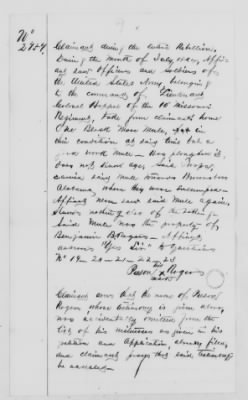 No
2754.
Claimant during the late Rebellion,
During the month of July, 1864, Affi-
ant saw Officers and Soldiers of
the United States Army, belonging
to the command of Lieutenant
Colonel of the 10 Missouri
Regiment, take from claimants home
One Black Mare Mule, fat in
fine condition at said time but a
good work mule — how employed is
does not know age, said troops
carried said mule towards
Alabama, where they were encamped —
Affiant never saw said mule again,
knows nothing else of the taking —
Said Mule was the property of
Benjamin Affiant
answers "Yes Sir" to questions
No 19 - 20 - 21 - 22 - 23
his
Person x Rogers
mark
Claimant avers that the name of Person
Rogers, whose testimony is given above,
was accidentally omitted from the
list of his witnesses as given in his
petition and application already filed,
and claimant prays that said testimony
be